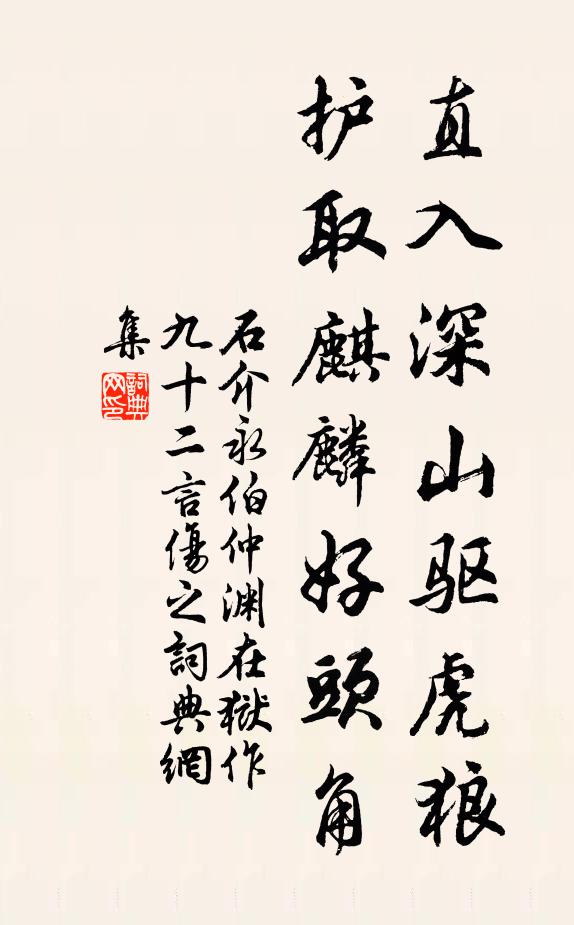 直入深山驱虎狼
护取麒麟好頭角
石介永伯仲渊在獄作
九十二言傷之詞典網
集
詞典
网印